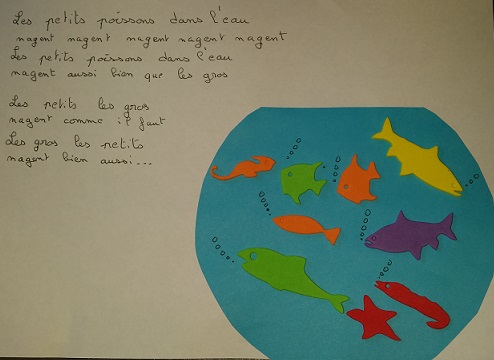 Les petits poissons dans l'eau
nagent nagent nagent nagent nagent
Les petits poissons dans l'eau
nagent aussi bien que les gros
Les petits les gros
nagent comme il faut
Les gros les petits
nagent bien aussi...